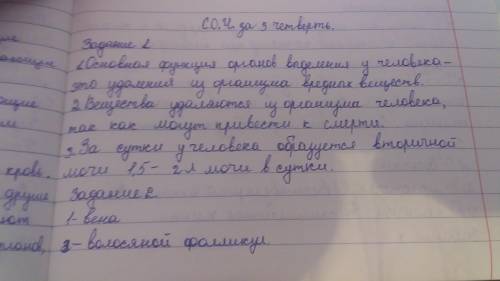 С.О.Ч. за 3 четверть.
Задание 1
1. Основная функция органов выделения у человека -
это удаления из организма вредных веществ.
2. Вещества удаляются из организма человека,
так как могут привести к смерти.
3. За сутки у человека образуется вторичной
кровь. мочи 1,5 - 2 л мочи в сутки.
другие Задание 2
1 - вена
3 - волосяной фолликул